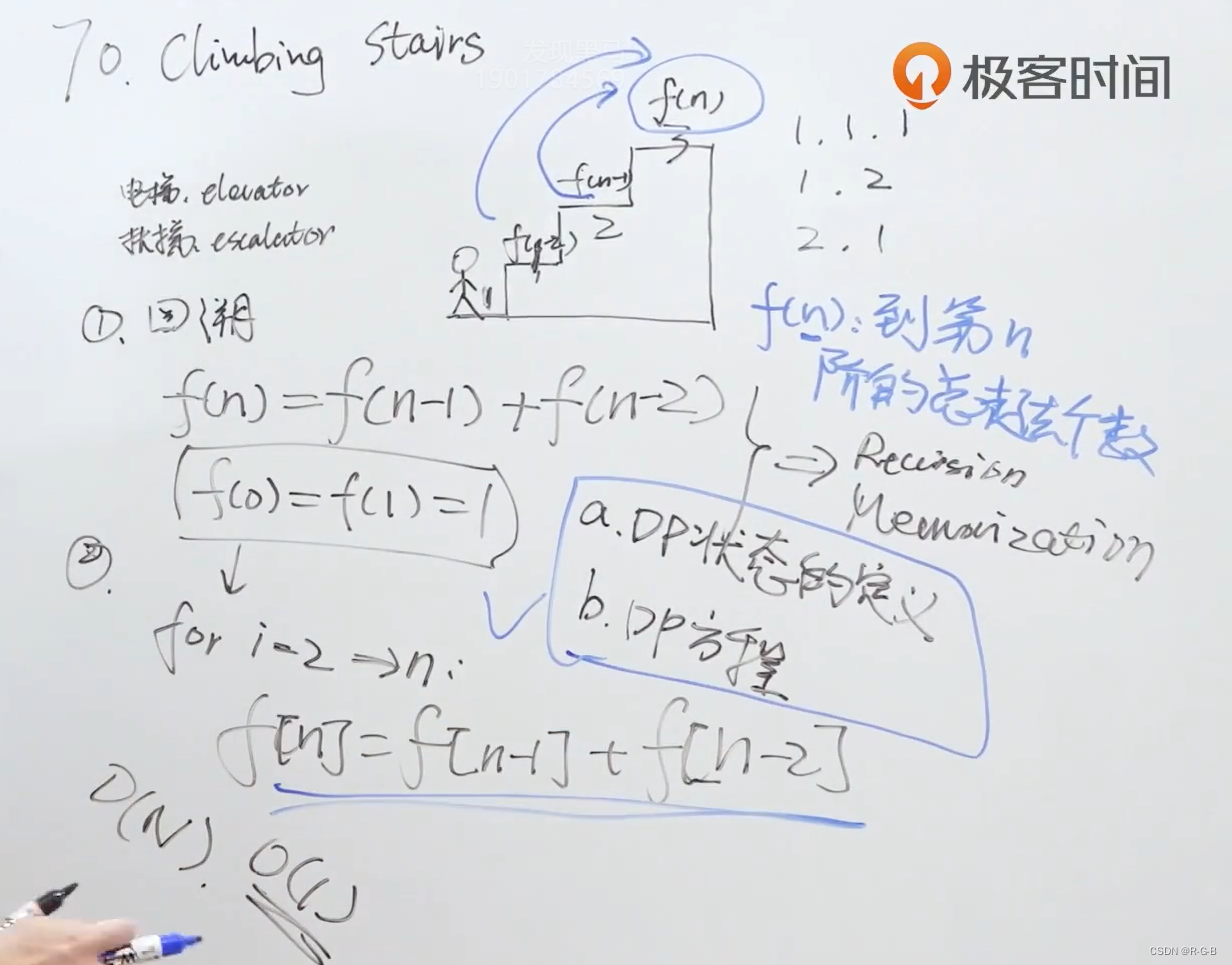 70. Climbing Stairs
极客时间
f(n)
3
f(n-1)
2
f(n-2)
1
1. 1. 1
1. 2
2. 1
电梯. elevator
扶梯. escalator
①. 回溯
f(n): 到第n
阶的总走法个数
f(n) = f(n-1) + f(n-2)
f(0) = f(1) = 1
⇒ Recursion
Memorization
②.
a. DP状态的定义
b. DP方程
for i=2 ⇒ n:
f[n] = f[n-1] + f[n-2]
O(N). O(1)
CSDN @R-G-B